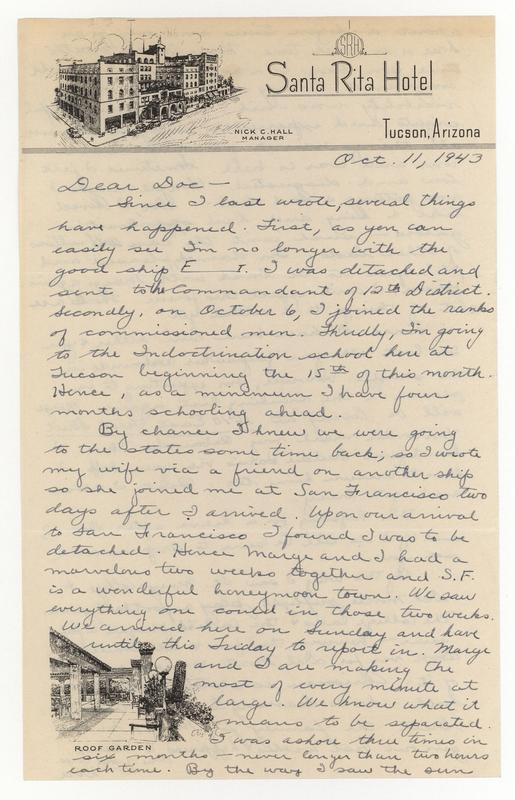 SRH
Santa Rita Hotel
NICK C. HALL
MANAGER
Tucson, Arizona
Oct. 11, 1943
Dear Doc—
Since I last wrote, several things
have happened. First, as you can
easily see I'm no longer with the
good ship E____ I. I was detached and
sent to the Commandant of 12th District.
Secondly, on October 6, I joined the ranks
of commissioned men. Thirdly, I'm going
to the Indoctrination school here at
Tucson beginning the 15th of this month.
Hence, as a minimum I have four
months schooling ahead.
By chance I knew we were going
to the states some time back; so I wrote
my wife via a friend on another ship
so she joined me at San Francisco two
days after I arrived. Upon our arrival
to San Francisco I found I was to be
detached. Hence Marge and I had a
marvelous two weeks together and S.F.
is a wonderful honeymoon town. We saw
everything one could in those two weeks.
We arrived here on Sunday and have
until this Friday to report in. Marge
and I are making the
most of every minute at
large. We know what it
means to be separated.
I was ashore three times in
six months — never longer than two hours
each time. By the way I saw the sun
ROOF GARDEN